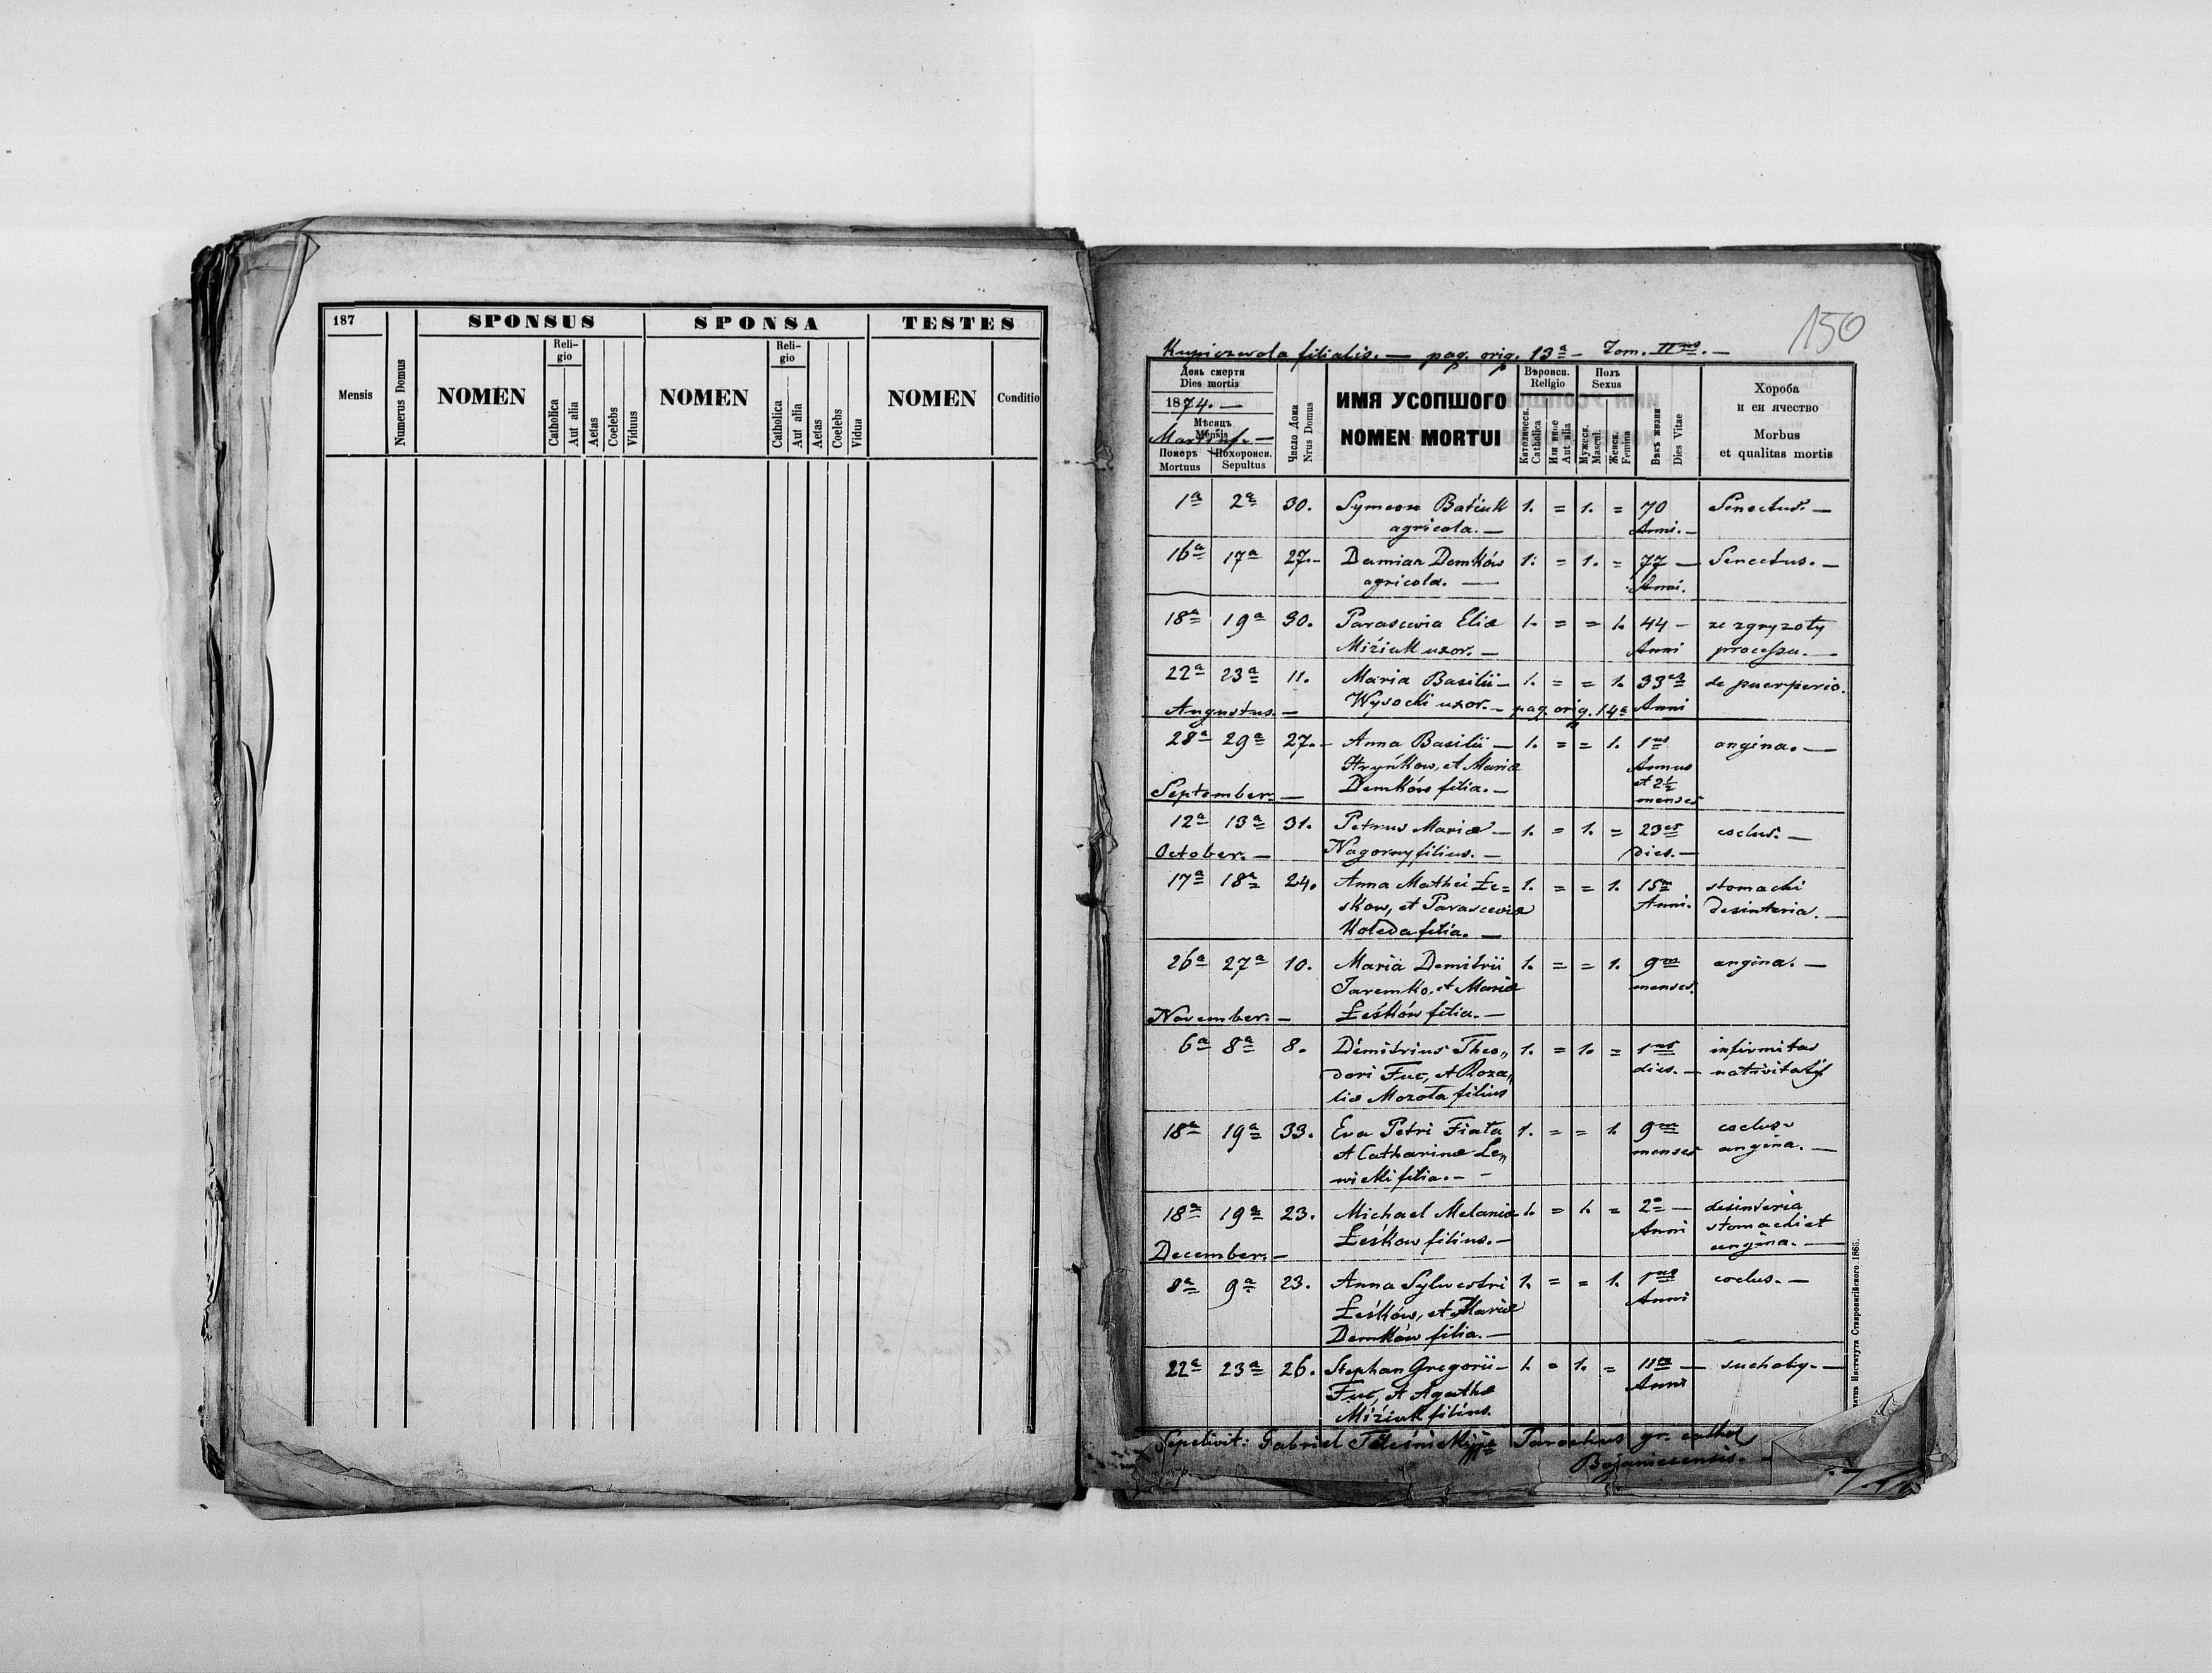 187
SPONSUS
SPONSA
TESTES
Mensis
Numerus Domus
NOMEN
Reli-
gio
Catholica
Aut alia
Aetas
Coelebs
Viduus
NOMEN
Reli-
gio
Catholica
Aut alia
Aetas
Coelebs
Vidua
NOMEN
Conditio
150
Kupiczwola filialis. — pag. orig. 13ª — Tom. IIus. —
День смерти
Dies mortis
1874. —
Мѣсяць
Mensis
Martius. —
Померъ
Mortuus
Похоронен.
Sepultus
Число Дома
Nrus Domus
ИМЯ УСОПШОГО
NOMEN MORTUI
Вѣроисп.
Religio
Католическ.
Catholica
Или иное
Aut alia
Полъ
Sexus
Мужеск.
Mascul.
Женск.
Femina
Вѣкъ жизни
Dies Vitae
Хороба
и еи ячество
Morbus
et qualitas mortis
1ª 2ª 30. Symeon Batiuk 1. = 1. = 70 Senectus. —
agricola. — Anni. —
16ª 17ª 27. — Damian Demków 1. = 1. = 77 — Senectus. —
agricola. — Anni.
18ª 19ª 30. Parascevia Eliæ 1. = = 1. 44 — ze zgryzoty
Miziuk uxor. — Anni processu. —
22ª 23ª 11. Maria Basilii — 1. = = 1. 33es de puerperio.
Augustus. — Wysocki uxor. — pag. orig. 14ª Anni
28ª 29ª 27. — Anna Basilii — 1. = = 1. 1us angina. —
Hryńkow, et Mariæ Annus
Demków filia. — et 2½
September. — menses
12ª 13ª 31. Petrus Mariæ — 1. = 1. = 23es coclus. —
October. — Nagorny filius. — Dies. —
17ª 18ª 24. Anna Mathei Łe= 1. = = 1. 15m stomachi
skow, et Parasceviæ Anni. desinteria. —
Koleda filia. —
26ª 27ª 10. Maria Demitrii 1. = = 1. 9m angina. —
Jaremko, et Mariæ menses.
November. — Łeśków filia. —
6ª 8ª 8. Demitrius Theo„ 1. = 1. = 1us infirmitas
dori Fuc, et Roza„ dies. — nativitatis
liæ Mozola filius
18ª 19ª 33. Eva Petri Fiała 1. = = 1. 9m coclus
et Catharinæ Le„ menses angina. —
wicki filia. —
18ª 19ª 23. Michael Melaniæ 1. = 1. = 2o — desinteria
Łeśkow filius. — Anni stomachi et
December. — angina. —
8ª 9ª 23. Anna Sylvestri 1. = = 1. 1us coclus. —
Łeśków, et Mariæ Anni
Demków filia. —
22ª 23ª 26. Stephan Gregorii — 1. = 1. = 11m — suchoty. —
Fuc, et Agathæ Anni
Miziuk filius.
Sepelivit: Gabriel Parochus gr. cathol
Bojanicensis. —
Института Ставропигійского 1865.